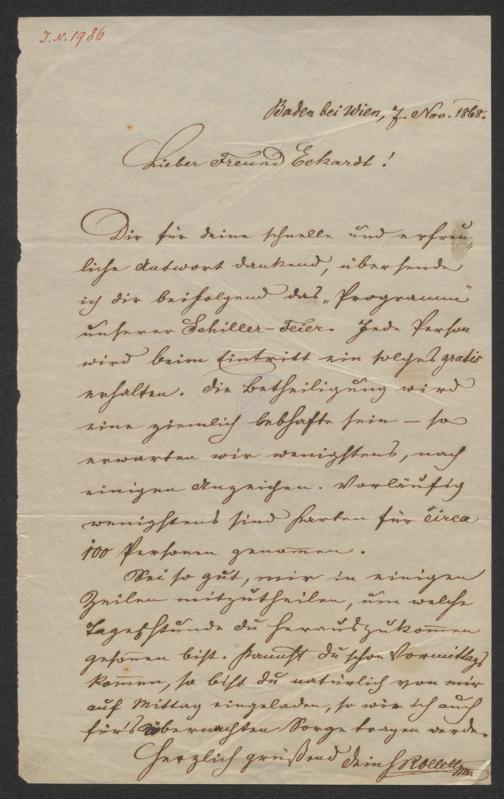 J.N. 1986
Baden bei Wien, 7. Nov. 1868.
Lieber Freund Eckardt!
Dir für deine schnelle und erfreu-
liche Antwort dankend, übersende
ich dir beifolgend das „Programm"
unserer Schiller-Feier. Jede Person
wird beim Eintritt ein solches gratis
erhalten. Die Betheiligung wird
eine ziemlich lebhafte sein – so
erwarten wir wenigstens, nach
einigen Anzeichen. Vorläufig
wenigstens sind Karten für circa
100 Personen genommen.
Sei so gut, mir in einigen
Zeilen mitzutheilen, um welche
Tagesstunde du herauszukommen
gesonnen bist. Kannst du schon Vormittags
kommen, so bist du natürlich von mir
auf Mittag eingeladen, so wie ich auch
für's Übernachten Sorge tragen werde.
Herzlich grüßend dein Rollett